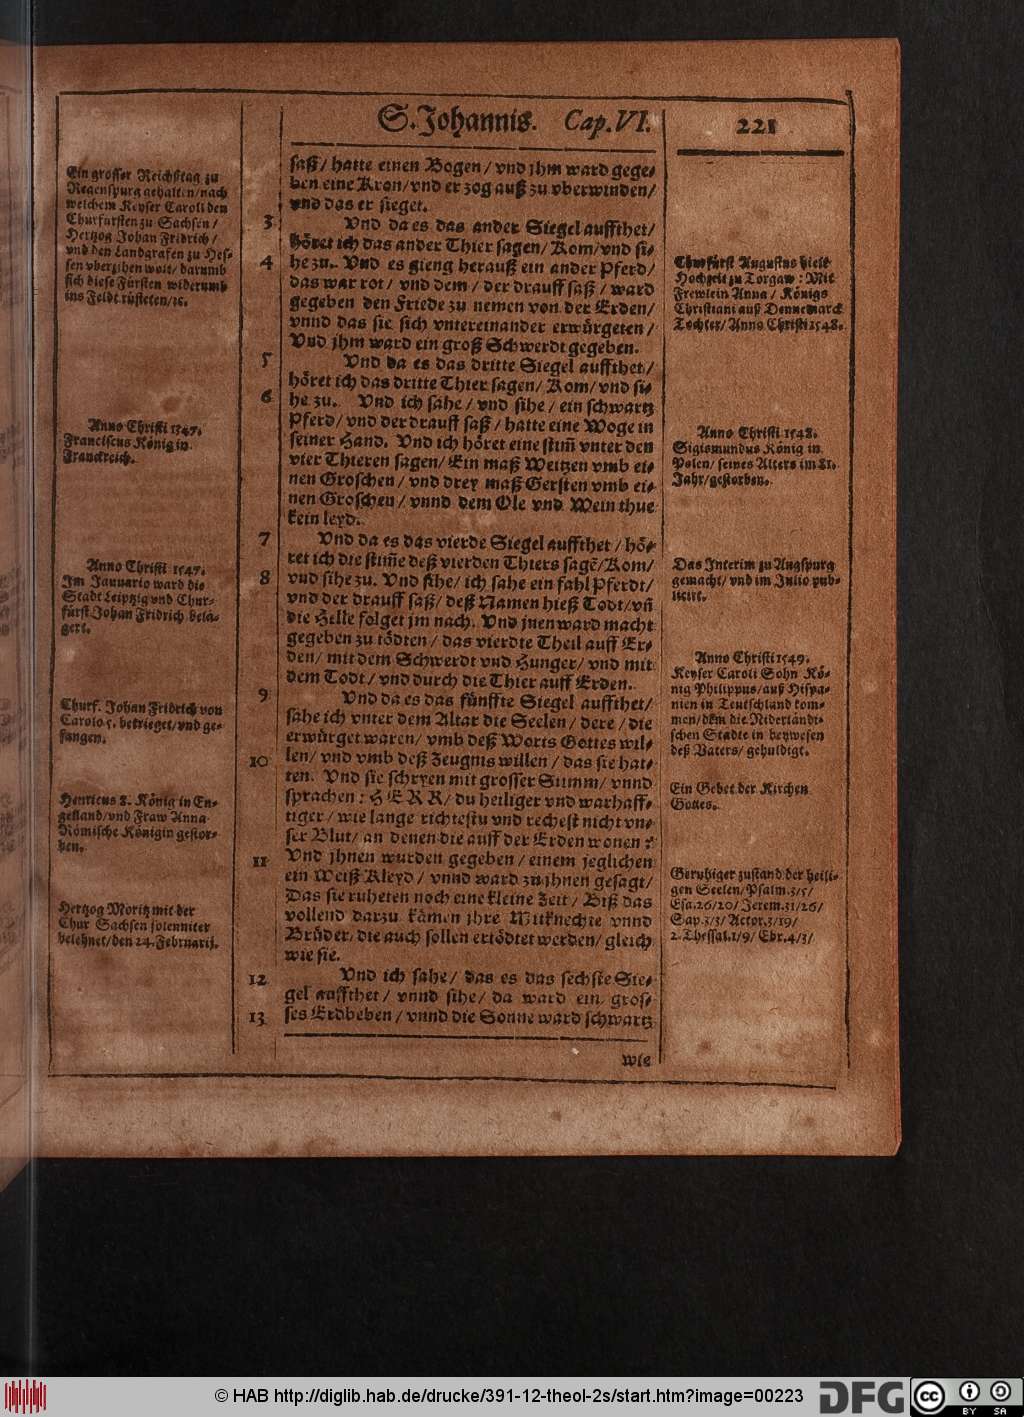 S. Johannis. Cap. VI. 221
Ein grosser Reichßtag zu
Regenspurg gehalten / nach
welchem Keyser Caroli den
Churfürsten zu Sachsen /
Hertzog Johan Fridrich /
vnd den Landgrafen zu Hes-
sen vberzihen wolt / darumb
sich diese Fürsten widerumb
ins Feldt rüsteten / ⁊c.
Anno Christi 1547.
Franciscus König in
Franckreich.
Anno Christi 1547.
Im Januario ward die
Stadt Leiptzig vnd Chur-
fürst Johan Fridrich belä-
gert.
Churf. Johan Fridrich von
Carolo 5. betrieget / vnd ge-
fangen.
Henricus 8. König in En-
gelland / vnd Fraw Anna
Römische Königin gestor-
ben.
Hertzog Moritz mit der
Chur Sachsen solenniter
belehnet / den 24. Februarij.
saß / hatte einen Bogen / vnd jhm ward gege-
ben eine Kron / vnd er zog auß zu vberwinden /
vnd das er sieget.
3 Vnd da es das ander Siegel auffthet /
höret ich das ander Thier sagen / Kom / vnd si-
4 he zu. Vnd es gieng herauß ein ander Pferd /
das war rot / vnd dem / der drauff saß / ward
gegeben den Friede zu nemen von der Erden /
vnnd das sie sich vntereinander erwürgeten /
Vnd jhm ward ein groß Schwerdt gegeben.
5 Vnd da es das dritte Siegel auffthet /
höret ich das dritte Thier sagen / Kom / vnd si-
6 he zu. Vnd ich sahe / vnd sihe / ein schwartz
Pferd / vnd der drauff saß / hatte eine Woge in
seiner Hand. Vnd ich höret eine stim̃ vnter den
vier Thieren sagen / Ein maß Weitzen vmb ei-
nen Groschen / vnd drey maß Gersten vmb ei-
nen Groschen / vnnd dem Ole vnd Wein thue
kein leyd.
7 Vnd da es das vierde Siegel auffthet / hö-
ret ich die stim̃e deß vierden Thiers sagẽ / Kom /
8 vnd sihe zu. Vnd sihe / ich sahe ein fahl Pferdt /
vnd der drauff saß / deß Namen hieß Todt / vñ
die Helle folget jm nach. Vnd jnen ward macht
gegeben zu tödten / das vierdte Theil auff Er-
den / mit dem Schwerdt vnd Hunger / vnd mit
dem Todt / vnd durch die Thier auff Erden.
9 Vnd da es das fünffte Siegel auffthet /
sahe ich vnter dem Altar die Seelen / dere / die
erwürget waren / vmb deß Worts Gottes wil-
10 len / vnd vmb deß Zeugnis willen / das sie hat-
ten. Vnd sie schryen mit grosser Stimm / vnnd
sprachen : HERR / du heiliger vnd warhaff-
tiger / wie lange richtestu vnd rechest nicht vn-
ser Blut / an denen die auff der Erden wonen ?
11 Vnd jhnen wurden gegeben / einem jeglichen
ein Weiß Kleyd / vnnd ward zu jhnen gesagt /
Das sie ruheten noch eine kleine Zeit / Biß das
vollend darzu kämen jhre Mitknechte vnnd
Brüder / die auch sollen ertödtet werden / gleich
wie sie.
12 Vnd ich sahe / das es das sechste Sie-
gel auffthet / vnnd sihe / da ward ein gros-
13 ses Erdbeben / vnnd die Sonne ward schwartz
wie
Churfürst Augustus hielt
Hochzeit zu Torgaw : Mit
Frewlein Anna / Königs
Christiani auß Dennemarck
Tochter / Anno Christi 1548.
Anno Christi 1548.
Sigismundus König in
Polen / seines Alters im 81.
Jahr / gestorben.
Das Interim zu Augspurg
gemacht / vnd im Julio pub-
licirt.
Anno Christi 1549.
Keyser Caroli Sohn Kö-
nig Philippus / auß Hispa-
nien in Teutschland kom-
men / dem die Niderländi-
schen Städte in beywesen
deß Vaters / gehuldigt.
Ein Gebet der Kirchen
Gottes.
Geruhiger zustand der heili-
gen Seelen / Psalm. 3 / 5 /
Esa. 26 / 20 / Jerem. 31 / 26 /
Sap. 3 / 3 / Actor. 3 / 19 /
2. Thessal. 1 / 9 / Ebr. 4 / 3 /
© HAB http://diglib.hab.de/drucke/391-12-theol-2s/start.htm?image=00223
DFG
cc BY SA